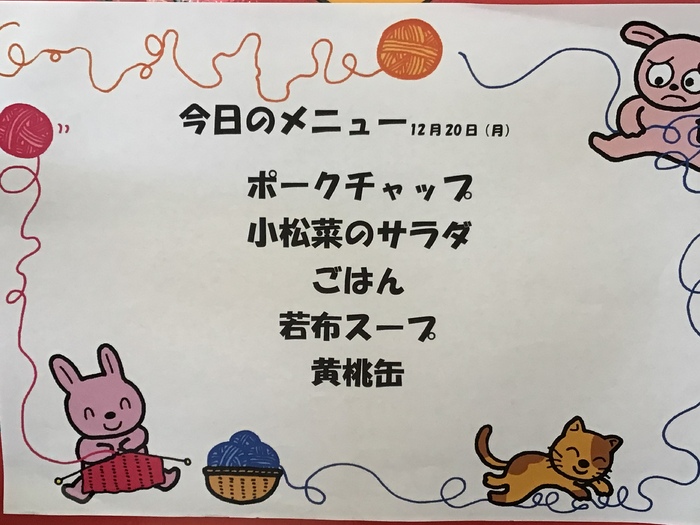 今日のメニュー 12月20日（月）
ポークチャップ
小松菜のサラダ
ごはん
若布スープ
黄桃缶